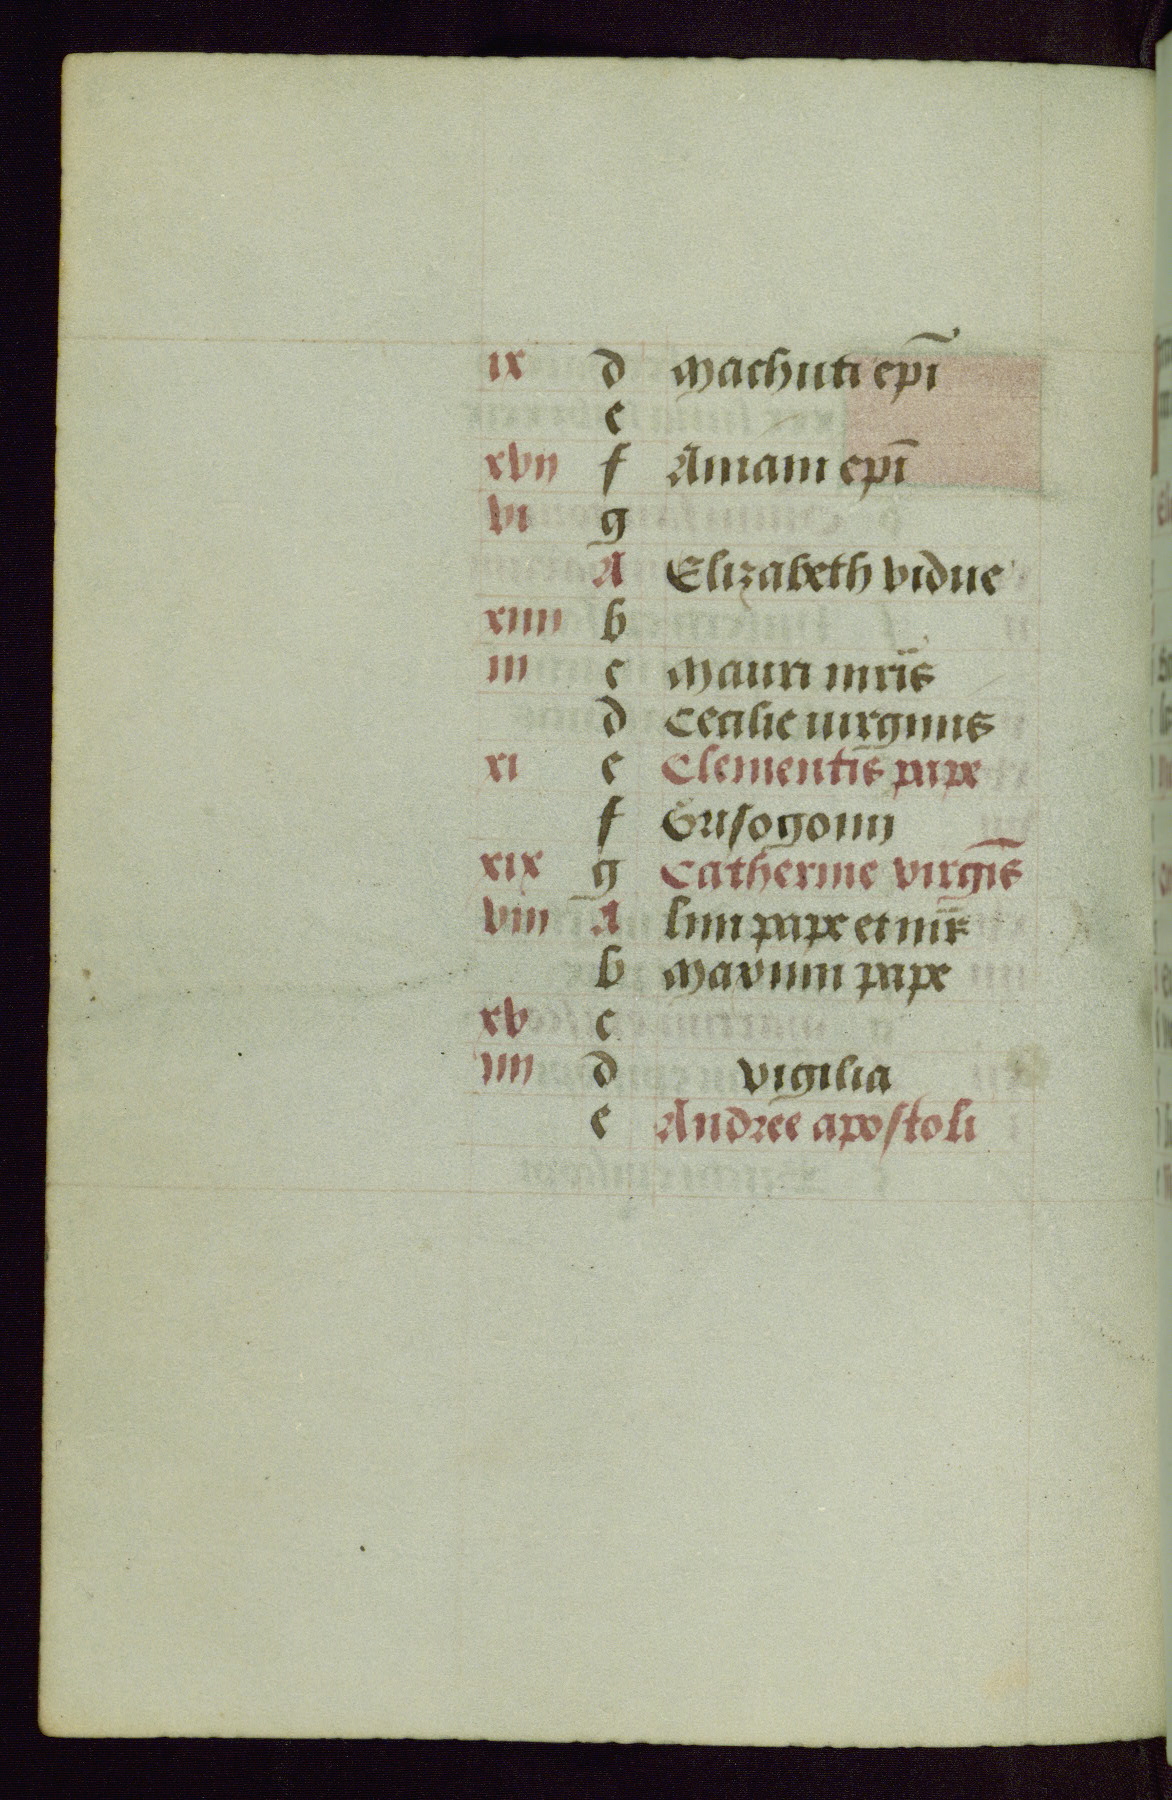 ix d Machuti epī
e
xvii f Aniani epī
vi g
A Elizabeth vidue
xiiii b
iii c Mauri mr̄is
d Cecilie uirginis
xi e Clementis pape
f Grisogonii
xix g Catherine virgīs
viii A lini pape et mr̄
b Maximi pape
xv c
iiii d vigilia
e Andree apostoli